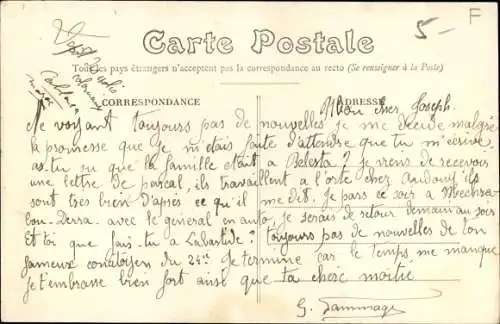 5-
F
Carte Postale
Tous les pays étrangers n'acceptent pas la correspondance au recto (Se renseigner à la Poste)
CORRESPONDANCE
ADRESSE
Mon cher Joseph.
Ne voyant toujours pas de nouvelles je me decide malgré
la promesse que je m'etais faite d'attendre que tu m'ecrive
as-tu vu que la famille etait a Belesta? Je viens de recevoir
une lettre de pascal, ils travaillent a l'orte chez Audouy ils
sont tres bien d'apres ce qu'il me dit. Je pars ce soir a Mechra
bou-Derra avec le general en auto je serais de retour demain au soir
Et toi que fais-tu a Labastide? toujours pas de nouvelles de ton
fameux concitoyen du 24me Je termine car le temps me manque
je t'embrasse bien fort ainsi que ta chere moitie
G.